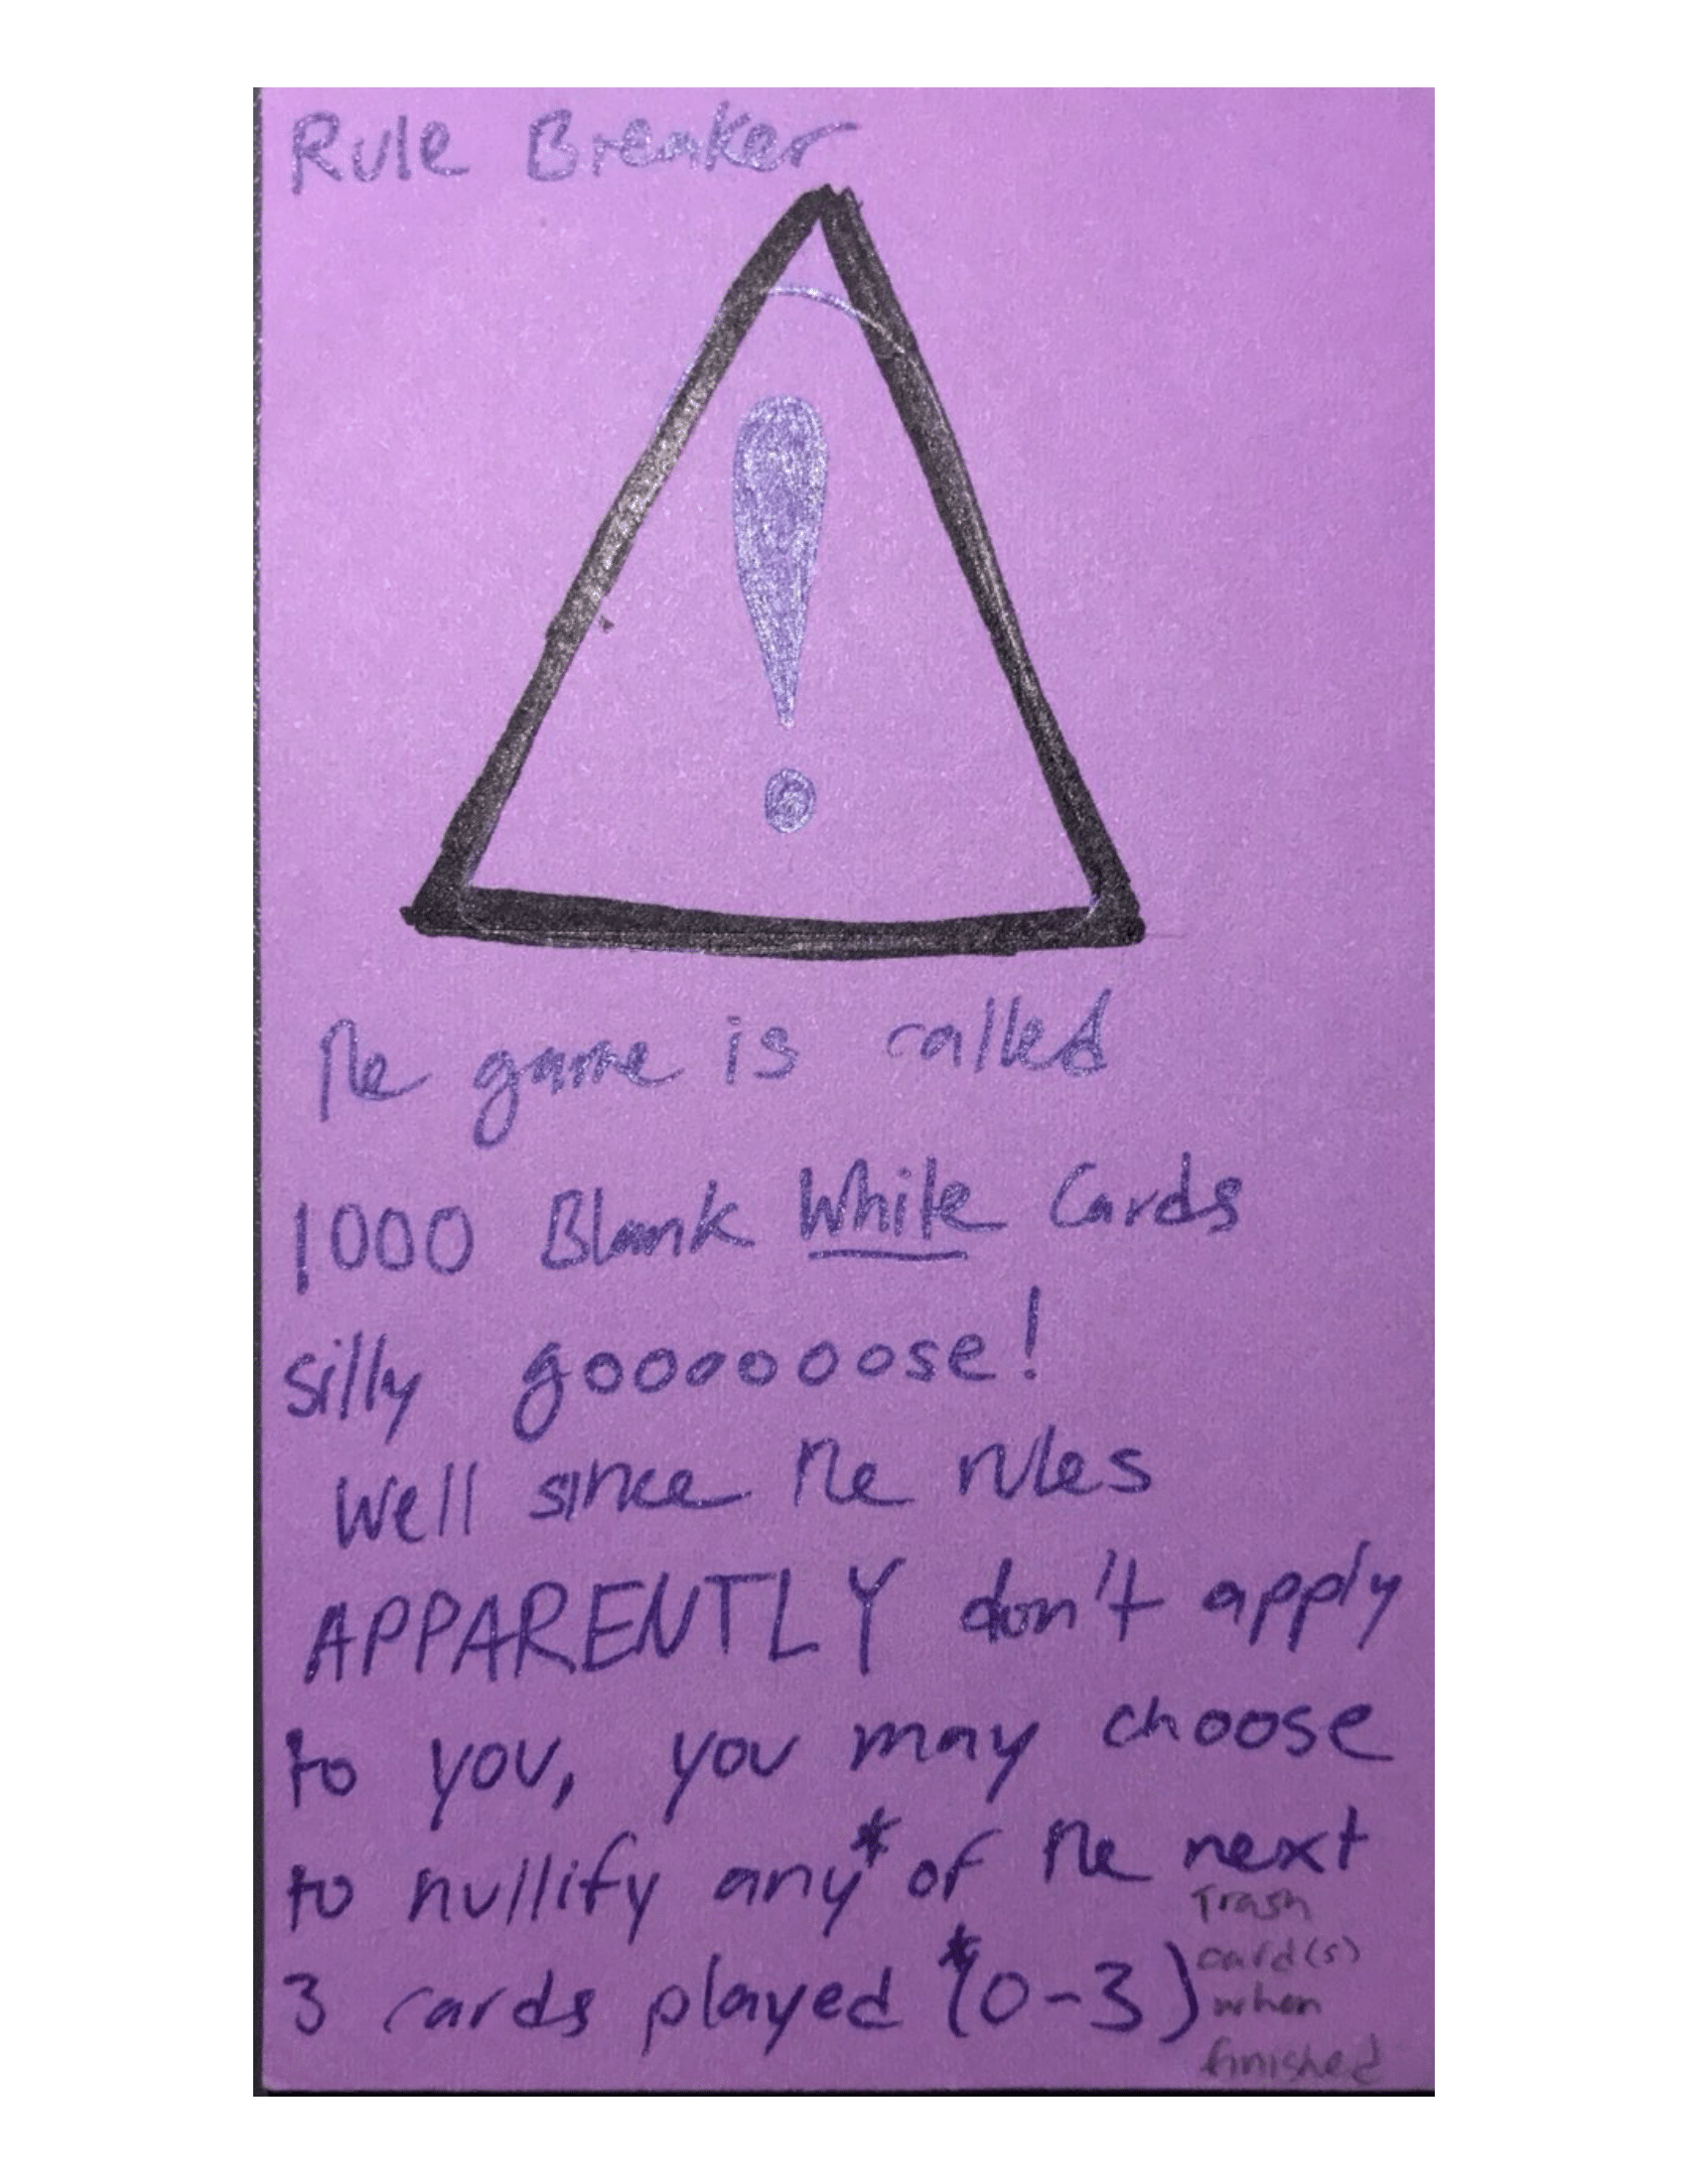 Rule Breaker
!
The game is called
1000 Blank White Cards
silly gooooooose!
Well since the rules
APPARENTLY don't apply
to you, you may choose
to nullify any* of the next
3 cards played *(0-3)
Trash
card(s)
when
finished